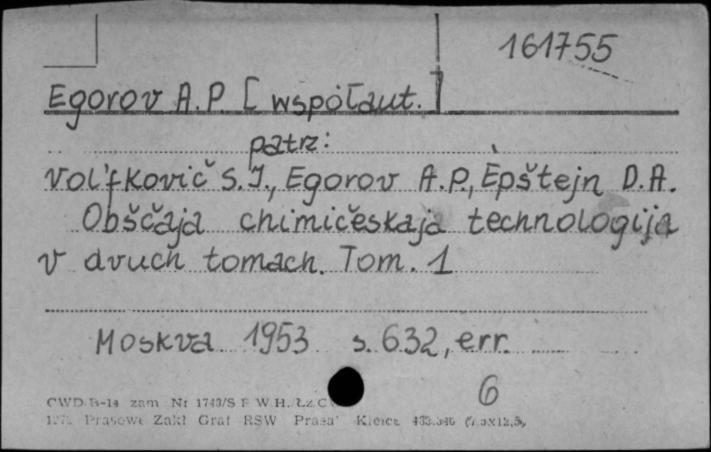 161755
Egorov A.P. [współaut.]
patrz:
Vol'fkovič S.I., Egorov A.P., Èpštejn D.A.
Obščaja chimičeskaja technologija
v dvuch tomach. Tom. 1
Moskva 1953 s. 632, err.
6
CWD.B-14 zam Nr 1743/S F W.H.
Prasowe Zakł Graf RSW "Prasa" Kielce